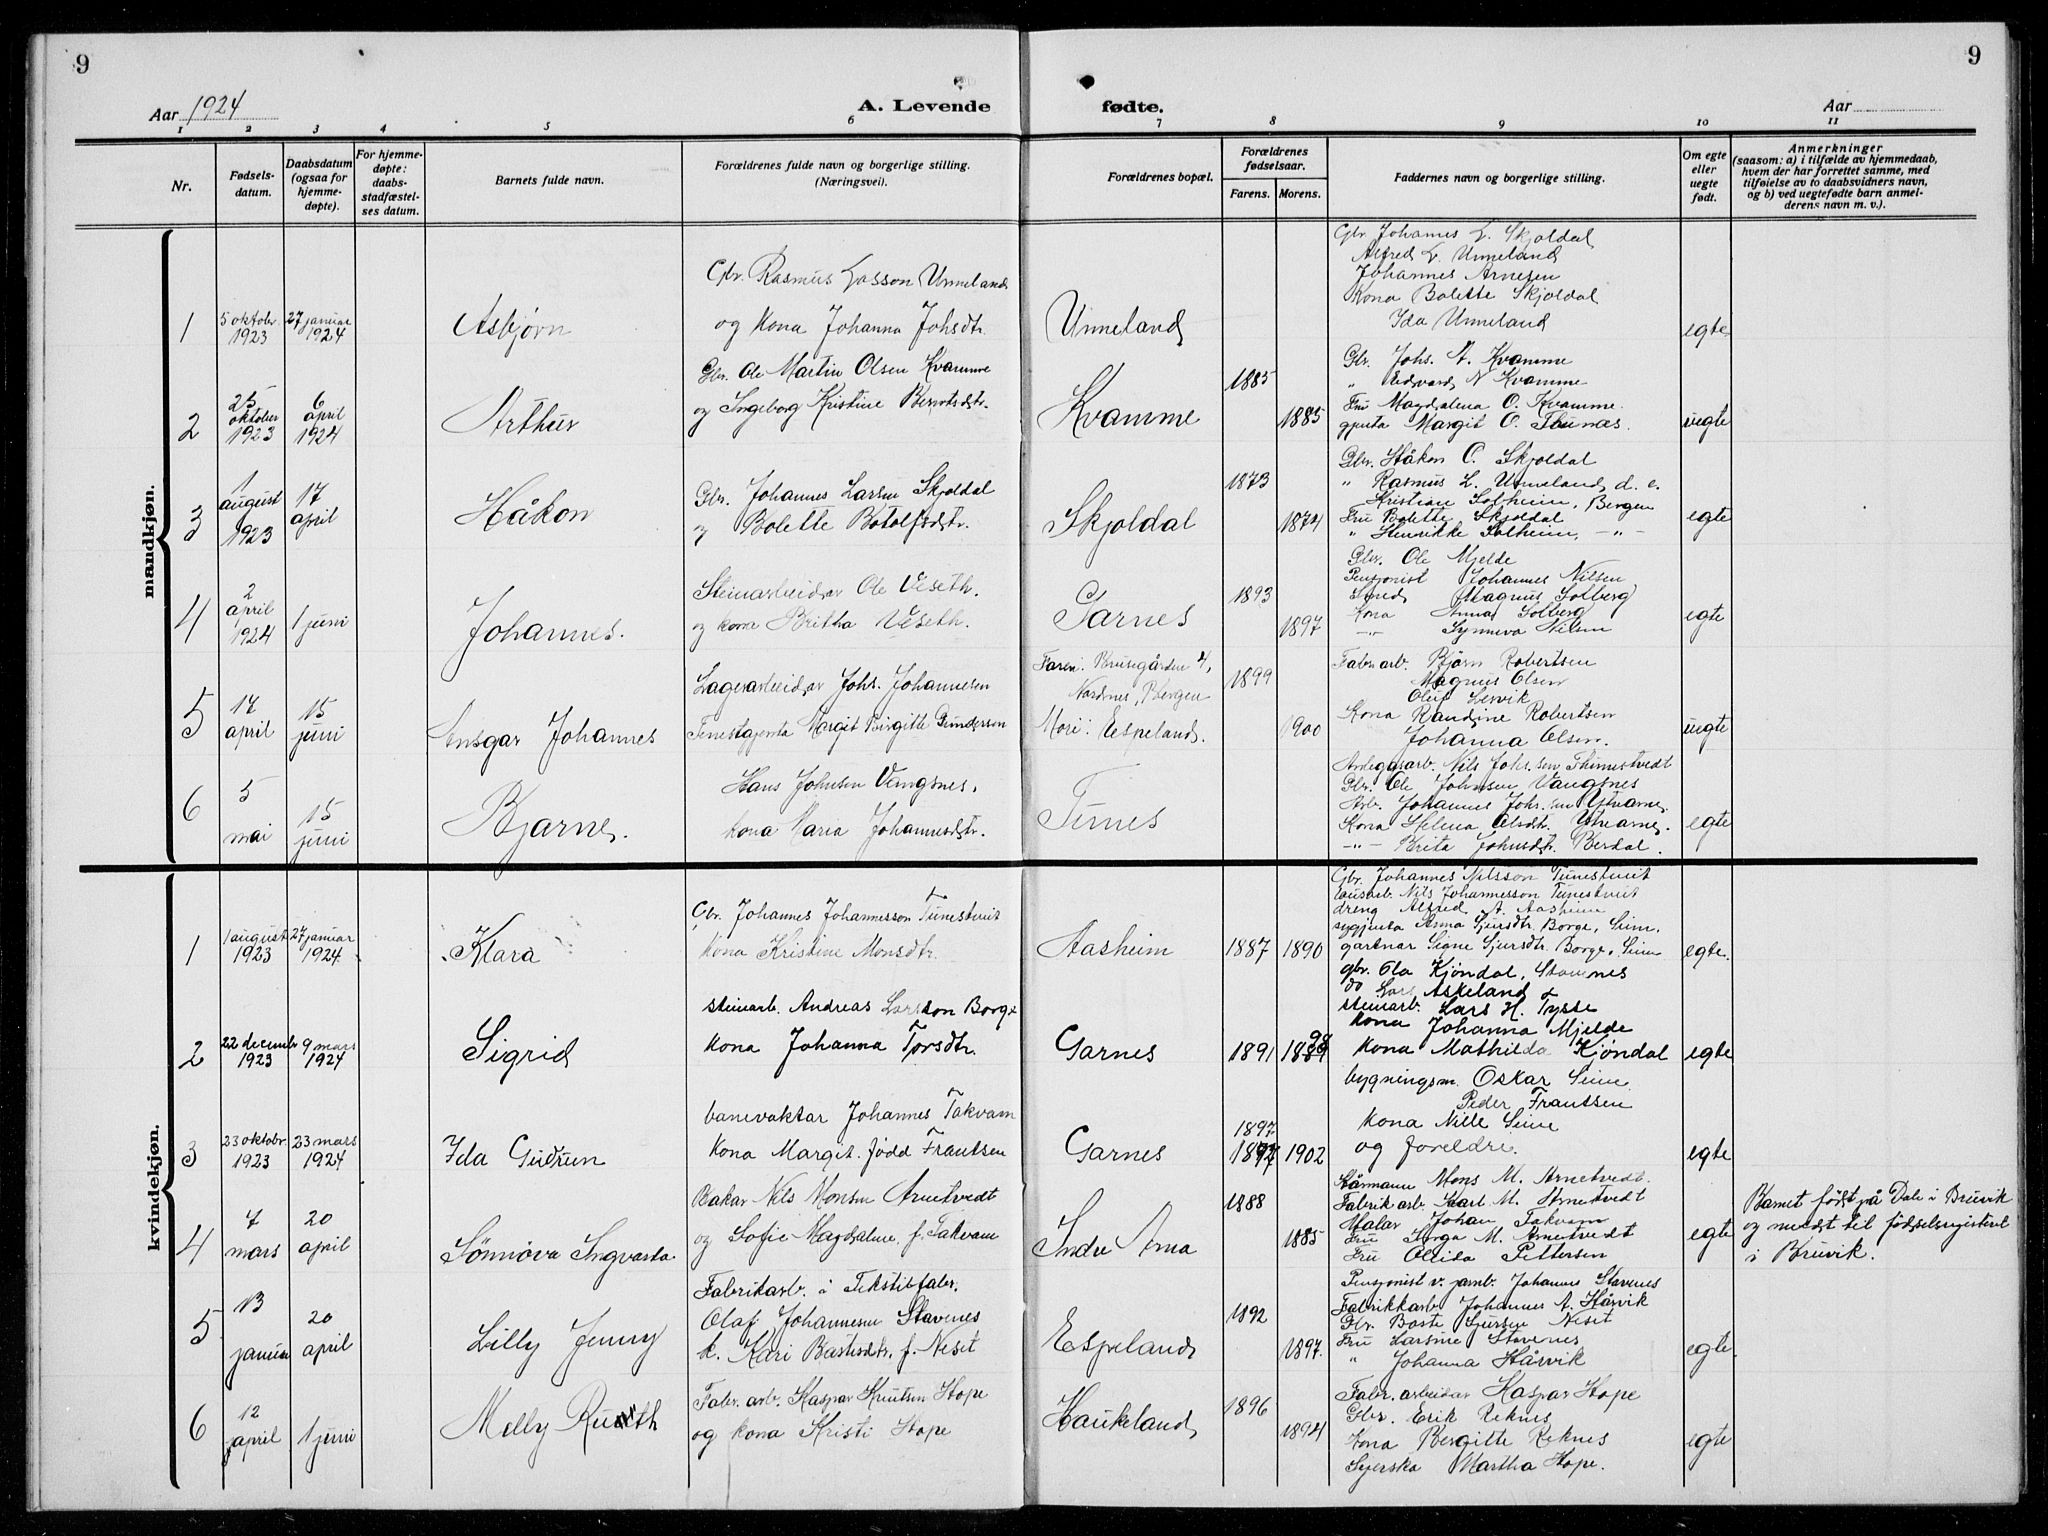 9
9
Aar 1924
A. Levende
fødte.
Aar
1 2 3 4 5 6 7 8 9 10 11
Nr.
Fødsels-
datum.
Daabsdatum
(ogsaa for
hjemme-
døpte).
For hjemme-
døpte:
daabs-
stadfæstel-
ses datum.
Barnets fulde navn.
Forældrenes fulde navn og borgerlige stilling.
(Næringsvei).
Forældrenes bopæl.
Forældrenes
fødselsaar.
Farens. Morens.
Faddernes navn og borgerlige stilling.
Om egte
eller
uegte
født.
Anmerkninger
(saasom: a) i tilfælde av hjemmedaab,
hvem der har forrettet samme, med
tilføielse av to daabsvidners navn,
og b) ved uegtefødte barn anmel-
derens navn m. v.).
mandkjøn.
1
5 oktobr.
1923
27 januar
1924
Asbjørn
Gbr. Rasmus Lasson Unneland
og kona Johanna Johsdtr.
Unneland
Gbr. Johannes L. Skjoldal
Alfred L. Unneland
Johannes Arnesen
Kona Bolette Skjoldal
Ida Unneland
egte
2
25
oktober
1923
6
april
1924
Arthur
Gbr. Ole Martin Olsen Kvamme
og Ingeborg Kristine Berntsdtr.
Kvamme
1885
1885
Gbr. Johs. A. Kvamme
" Edvard N Kvamme
Fru Magdalena O. Kvamme
gjenta Margit O. Tunæs.
uegte
3
1
august
1923
17
april
Håkon
Gbr. Johannes Larsen Skjoldal
og Bolette Botolfsdtr.
Skjoldal
1873
1874
Gbr. Håkon O. Skjoldal
" Rasmus L. Unneland d. e.
Kristian Solheim, Bergen
Fru Bolette Skjoldal
" Henrikke Solheim, -"-
egte
4
2
april
1924
1 juni
Johannes.
Steinarbeidar Ole Veseth.
og kona Britha Veseth.
Garnes
1893
1897
Gbr. Ole Mjelde
Pensjonist Johannes Nilsen
Smed Magnus Solberg
Kona Anna Solberg
-"- Synneva Nilsen
egte
5
17
april
15
juni
Ansgar Johannes
Lagerarbeidar Johs. Johannesen
Tenestgjenta Margit Birgitte Gundersen
Faren: Krusegården 4,
Nordnes, Bergen
Mori: Espeland.
1899
1900
Fabr.arb. Bjørn Robertsen
Magnus Olsen
Oluf Lervik
Kona Randine Robertsen
Johanna Olsen.
uegte
6
5
mai
15
juni
Bjarne.
Hans Johnsen Vangsnes.
kona Maria Johannesdtr.
Tunes
Anleggsarb. Nils Johs.sen Thunestvedt
Gbr. Ole Johnsen Vangsnes
Arb. Johannes Johs.sen Ytrearne.
Kona Helena Olsdtr. Ytrearne.
-"- Brita Johnsdtr. Berdal.
egte
kvindekjøn.
1
1 august
1923
27 januar
1924
Klara
Gbr. Johannes Johannesson Tunestveit
kona Kristine Monsdtr.
Aasheim
1887
1890
Gbr. Johannes Nilsson Tunestveit
lausarb. Nils Johannesson Tunestveit
dreng Alfred A. Aasheim
sygjenta Anna Sjursdtr. Borge, Seim.
gartnar Signe Sjursdtr. Borge, Seim
egte.
2
22 december
1923
9 mars
1924
Sigrid
steinarb. Andreas Larsson Borge
kona Johanna Torsdtr.
Garnes
1891
1889 98
gbr. Ola Kjøndal, Stavenes
do Lars Askeland
steinarb. Lars H. Tysse
kona Johanna Mjelde
kona Mathilda Kjøndal
egte
3
23 oktobr.
1923
23 mars
1924
Ida Gudrun
banevaktar Johannes Takvam
kona Margit fødd Frantsen
Garnes
1897
1897
1902
bygningsm. Oskar Seim
Peder Frantsen
kona Nille Seim
og foreldre.
egte
4
7
mars
20
april
Sønnøva Ingvarda
Bakar Nils Monsen Arnetvedt
og Sofie Magdalene f. Takvam
Indre Arna
1888
1885
Kårmann Mons M. Arnetvedt.
Fabrikarb. Karl M. Arnetvedt
Malar Johan Takvam
Fru Inga M. Arnetvedt
Fru Olida Pettersen
egte
Barnet født på Dale i Bruvik
og meldt til fødselsregisteret
i Bruvik.
5
13
januar
20
april
Lilly Jenny
Fabrikarb. i Tekstilfabr.
Olaf Johannesen Stavenes
k. Kari Bastesdtr. f. Neset
Espeland
1892
1897.
Pensjonist v. jarnb. Johannes Stavenes
Fabrikkarb. Johannes A. Hårvik
Gbr. Boste Sjursen Neset
Fru Larsine Stavenes
" Johanna Hårvik
egte.
6
12
april
1 juni
Melly Ruth
Fabr. arb. Kaspar Knutsen Hope
og kona Kristi Hope
Haukeland
1896
1894
Fabr. arbeidar Kaspar Hope
Gbr. Erik Reknes
Kona Bergitte Reknes
Syerska Martha Hope.
egte